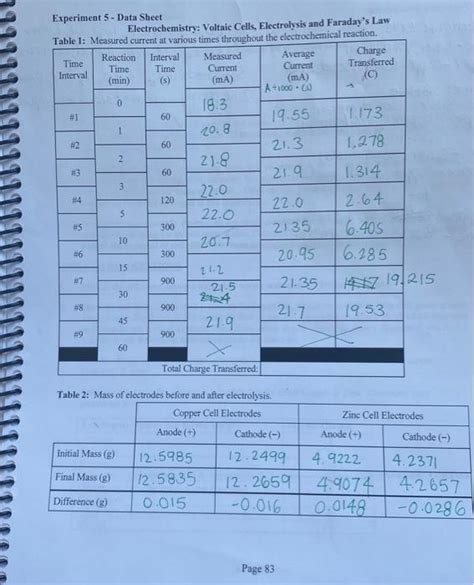 Experiment 5 - Data Sheet
Electrochemistry: Voltaic Cells, Electrolysis and Faraday's Law
Table 1: Measured current at various times throughout the electrochemical reaction.
Time Interval Reaction Time (min) Interval Time (s) Measured Current (mA) Average Current (mA) Charge Transferred (C)
A÷1000 × (s)
0 18.3
#1 60 19.55 1.173
1 20.8
#2 60 21.3 1.278
2 21.8
#3 60 21.9 1.314
3 22.0
#4 120 22.0 2.64
5 22.0
#5 300 21.35 6.405
10 20.7
#6 300 20.95 6.285
15 21.2
#7 900 21.35 19.215
30 21.5
#8 900 21.7 19.53
45 21.9
#9 900
60
Total Charge Transferred:
Table 2: Mass of electrodes before and after electrolysis.
Copper Cell Electrodes Zinc Cell Electrodes
Anode (+) Cathode (−) Anode (+) Cathode (−)
Initial Mass (g) 12.5985 12.2499 4.9222 4.2371
Final Mass (g) 12.5835 12.2659 4.9074 4.2657
Difference (g) 0.015 -0.016 0.0148 -0.0286
Page 83